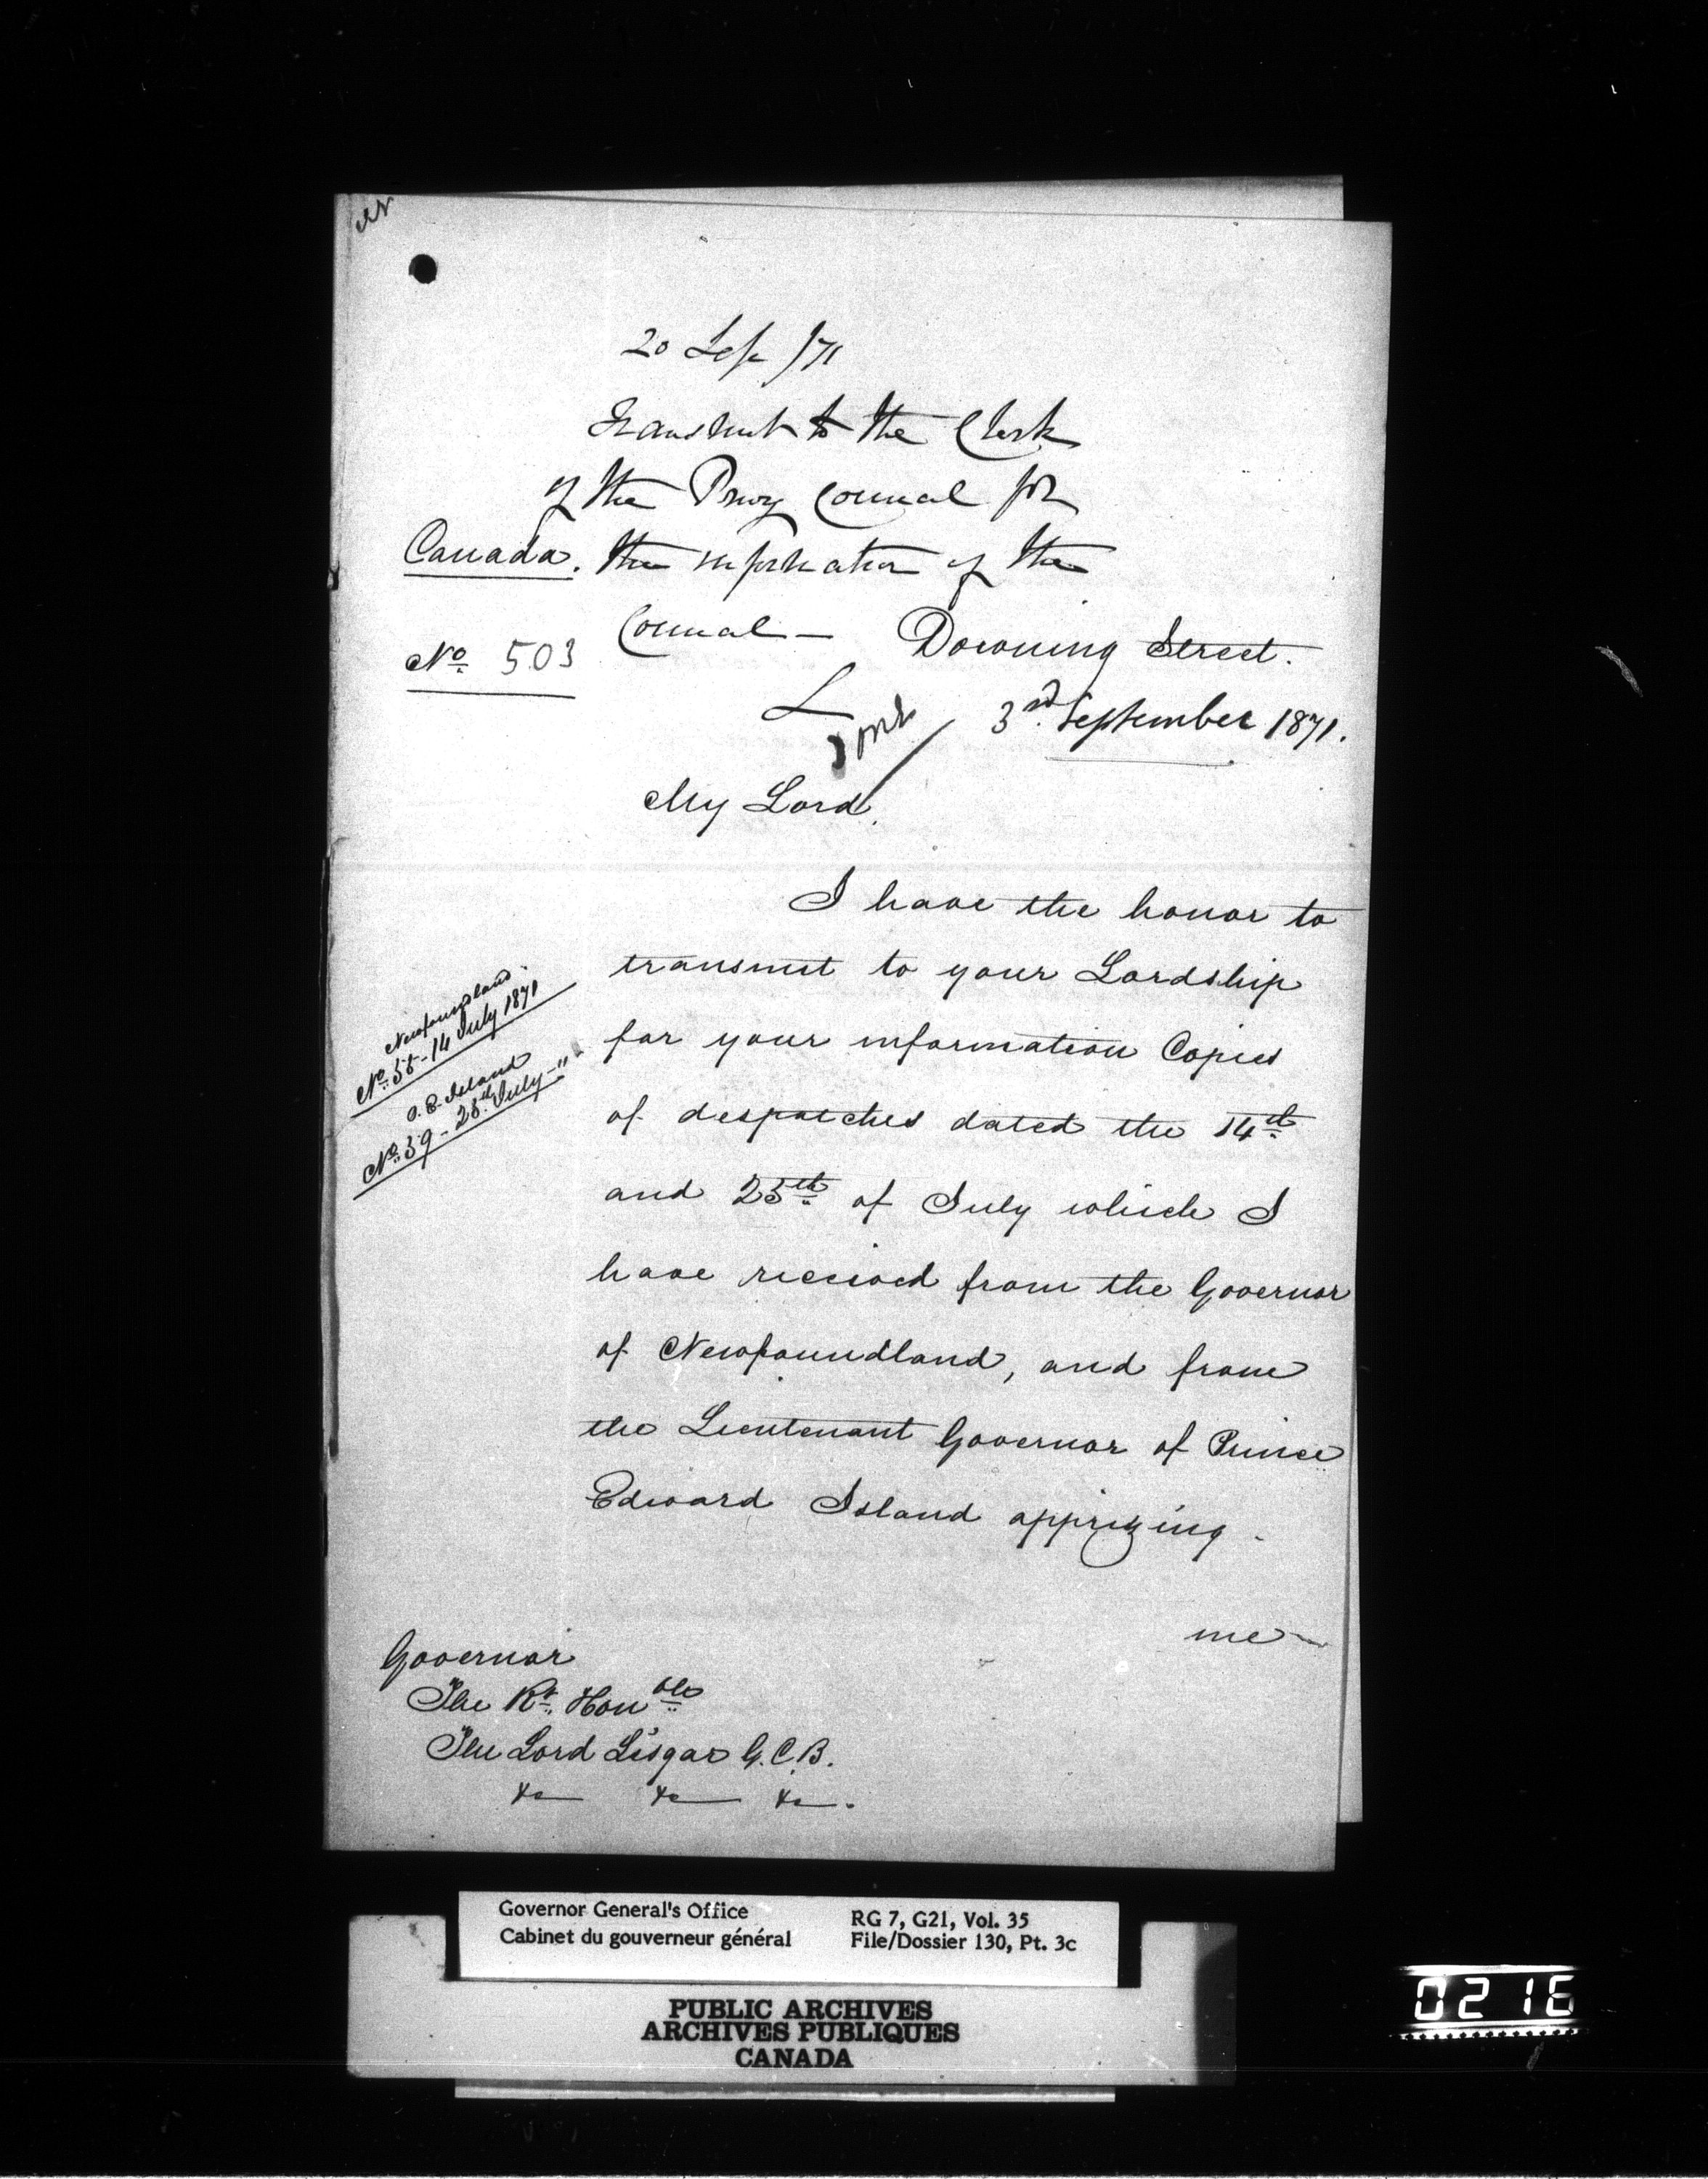 20 Sep /71
Transmit to the Clerk
of the Privy Council for
Canada. the information of the
Council —
No. 503
Downing Street.
L
3rd September 1871.
My Lord,
I have the honor to
transmit to your Lordship
for your information Copies
of despatches dated the 14th
and 25th of July which I
have received from the Governor
of Newfoundland, and from
the Lieutenant Governor of Prince
Edward Island apprizing
me
Newfoundland
No. 58 - 14 July 1871
P. E. Island
No. 59 - 28th July - "
Governor
The Rt. Honble
The Lord Lisgar G.C.B.
&c &c &c.
Governor General's Office
Cabinet du gouverneur général
RG 7, G21, Vol. 35
File/Dossier 130, Pt. 3c
PUBLIC ARCHIVES
ARCHIVES PUBLIQUES
CANADA
0216